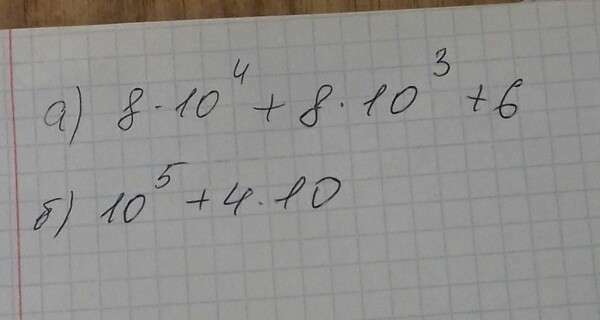 а) 8·10⁴ + 8·10³ + 6
б) 10⁵ + 4·10